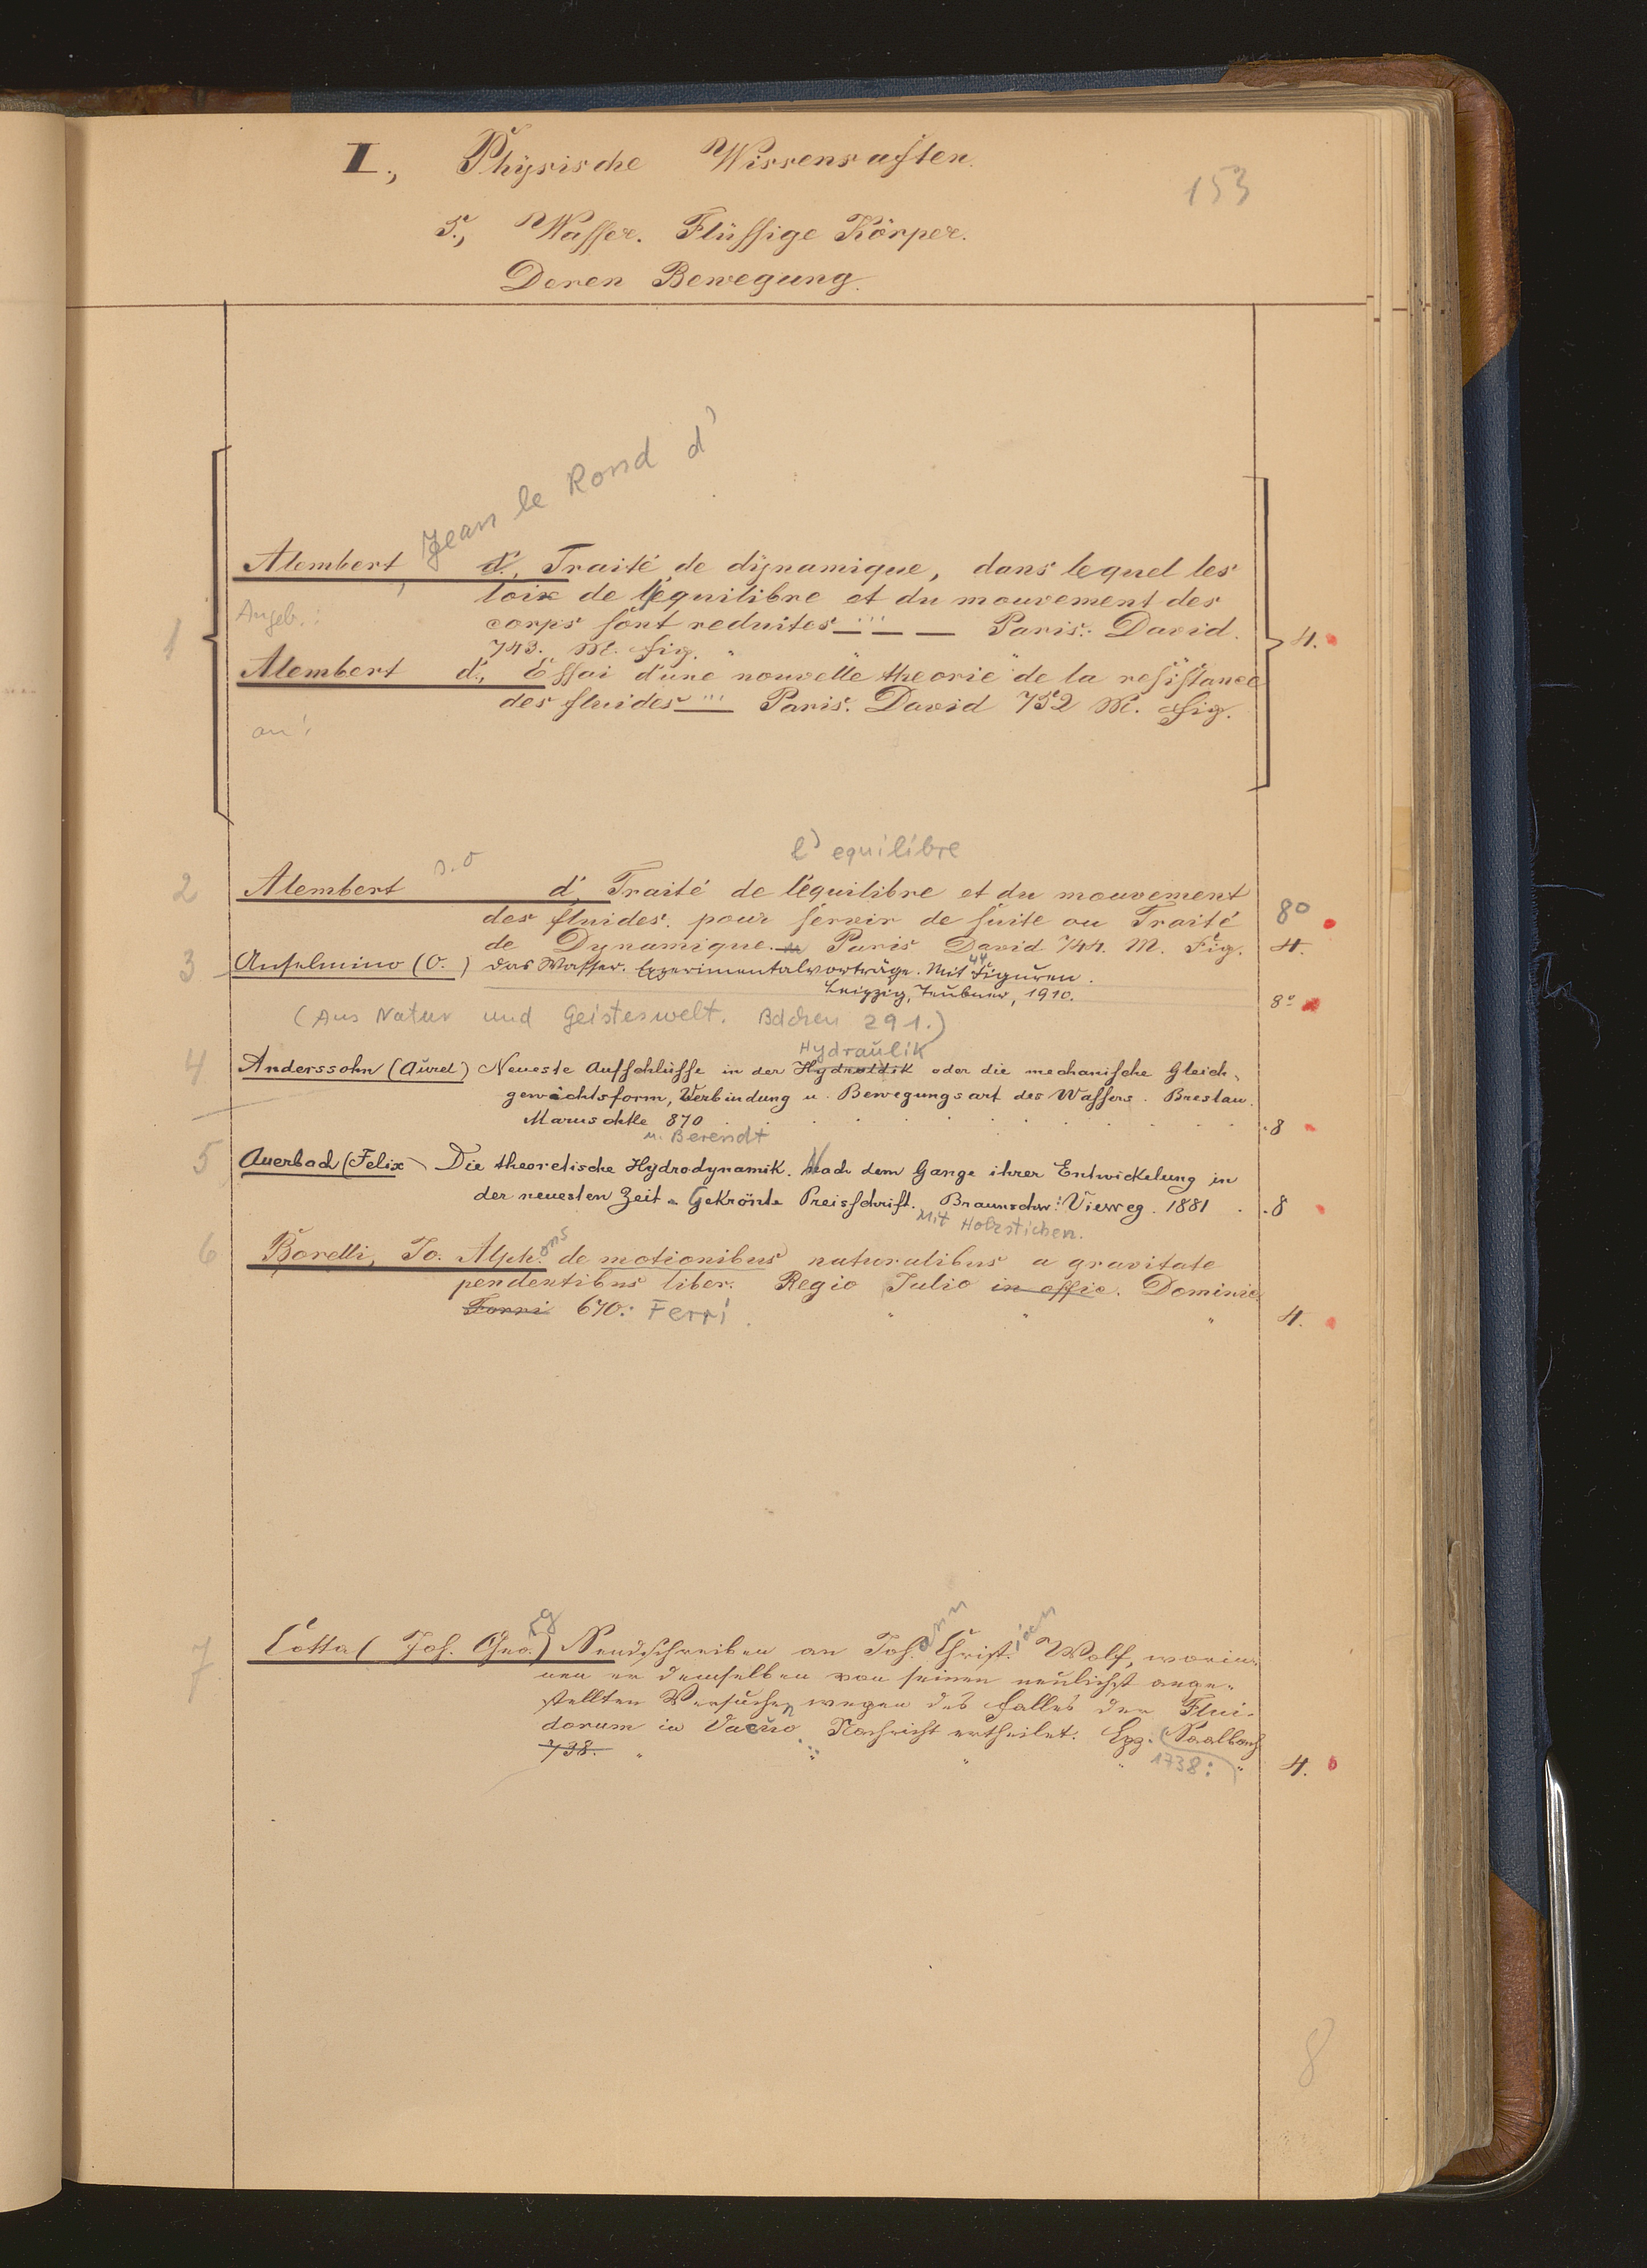 I., Physische Wissensaften.
153
5., Wasser. Flüssige Körper.
Deren Bewegung.
Jean le Rond d'
Alembert, d', Traité de dynamique, dans lequel les
loix de l'equilibre et du mouvement des
Angeb.:
corps sont reduites ''' Paris: David.
1
4.
743. M. fig.
Alembert d', Essai d'une nouvelle theorie de la resistance
des fluides ''' Paris. David 752 M. Fig.
an:
l' equilibre
s. o
2 Alembert d', Traité de l'équilibre et du mouvement
des fluides. pour servir de suite au Traité 8o
de Dynamique. Paris David 744. M. Fig. 4.
3 Anselmino (O.) Das Wasser. Experimentalvorträge. Mit 44 Figuren.
Leipzig, Teubner, 1910. 8°
(Aus Natur und Geisteswelt. Bdchen 291.)
Hydraulik
4 Anderssohn (Aurel) Neueste Aufschlüsse in der Hydraldik oder die mechanische Gleich-
gewichtsform, Verbindung u. Bewegungsart des Wassers. Breslau.
Maruschke 870 8
u. Berendt
5 Auerbach (Felix) Die theoretische Hydrodynamik. Nach dem Gange ihrer Entwickelung in
der neuesten Zeit. Gekrönte Preisschrift. Braunschw: Vieweg. 1881 8
Mit Holzstichen.
6 Borelli, Jo. Alph.ons de motionibus naturalibus a gravitate
pendentibus liber. Regio Julio in offic. Dominic
Forri 670: Ferri 4.
7 Cotta (Joh. Geo.rg) Sendschreiben an Joh.ann Christ.ian Wolf, worin-
nen er demselben von seinen neulichst ange-
stellten Versuchen wegen des Falles der Flui-
dorum in Vacuo Nachricht ertheilet. Lpz. Saalbach
738. 1738: 4.
8